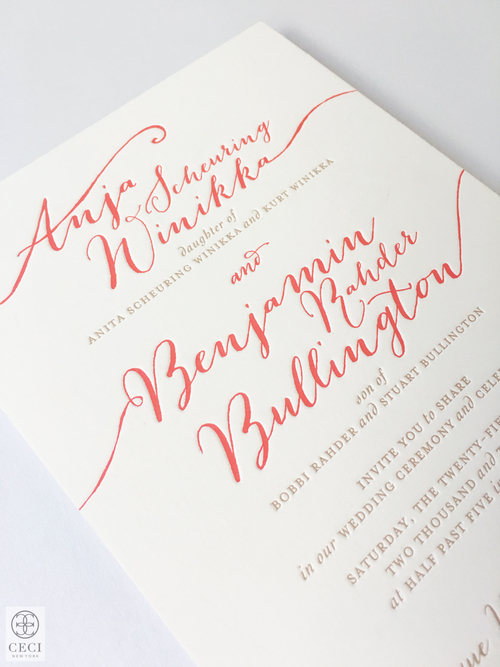 Anja
Scheuring
Winikka
daughter of
ANITA SCHEURING WINIKKA and KURT WINIKKA
and
Benjamin
Rahder
Bullington
son of
BOBBI RAHDER and STUART BULLINGTON
INVITE YOU to SHARE
in our WEDDING CEREMONY and
SATURDAY, THE
TWO THOUSAND and
at HALF PAST FIVE
CECI
NEW YORK